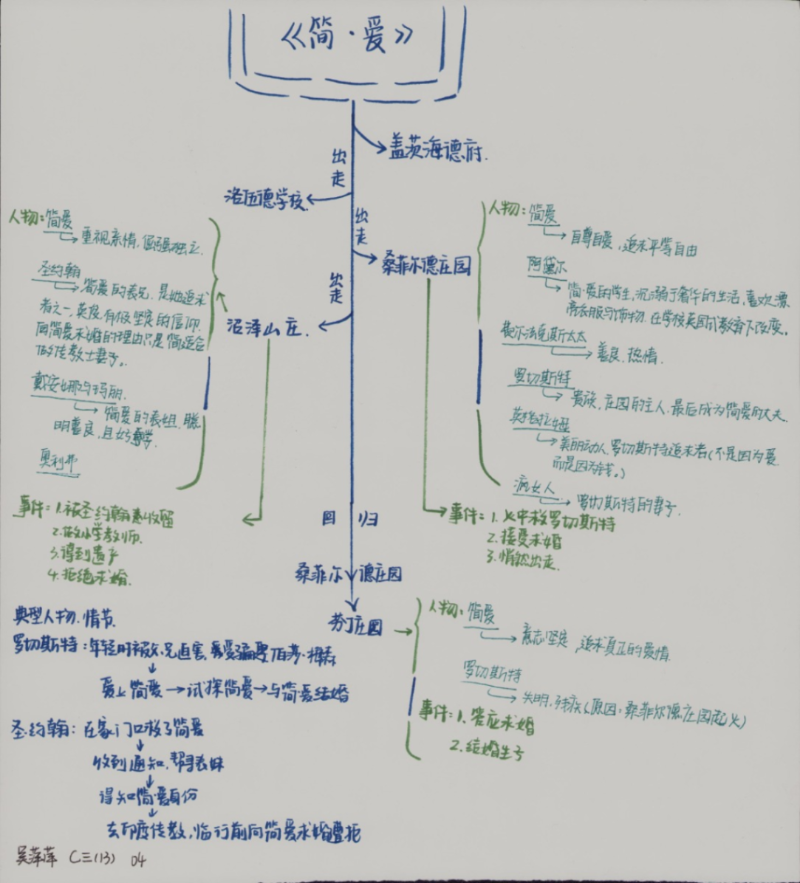 《简·爱》
出走
盖茨海德府.
洛伍德学校.
出走
桑菲尔德庄园
出走
沼泽山庄.
人物:简爱
重视亲情,倔强独立.
圣约翰
简爱的表兄,是她追求
者之一,英俊,有很坚定的信仰.
向简爱求婚的理由只是简适合
做传教士妻子。
戴安娜与玛丽.
简爱的表姐,聪
明善良,且好学
奥利弗
事件:1.被圣约翰收留
2.做小学教师.
3.得到遗产
4.拒绝求婚.
人物:简爱
自尊自爱,追求平等自由
阿黛尔
简·爱的学生,沉溺于奢华的生活,喜欢漂
亮衣服与饰物,在学校英国式教育下改变。
费尔法克斯太太
善良,热情.
罗切斯特
贵族,庄园的主人,最后成为简爱的丈夫.
英格拉姆
美丽动人,罗切斯特追求者(不是因为爱
而是因为钱。)
疯女人
罗切斯特的妻子.
事件:1.火中救罗切斯特
2.接受求婚
3.悄然出走.
回归
桑菲尔德庄园
芬丁庄园
人物:简爱
意志坚定,追求真正的爱情
罗切斯特
失明,残疾(原因:桑菲尔德庄园起火)
事件:1.答应求婚
2.结婚生子
典型人物.情节.
罗切斯特:年轻时被父兄迫害,
爱上简爱→试探简爱→与简爱结婚
圣·约翰:在家门口救了简爱
收到通知,帮寻表妹
得知简爱身份
去印度传教,临行前向简爱求婚遭拒
吴萍萍 C三(13) 04